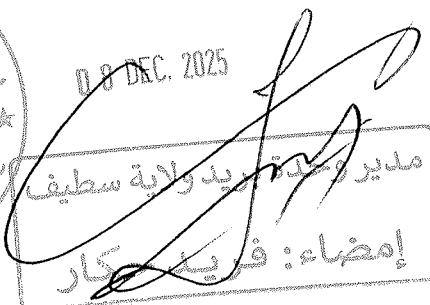 08 DEC. 2025
مدير وحدة بريد ولاية سطيف
إمضاء: فريد